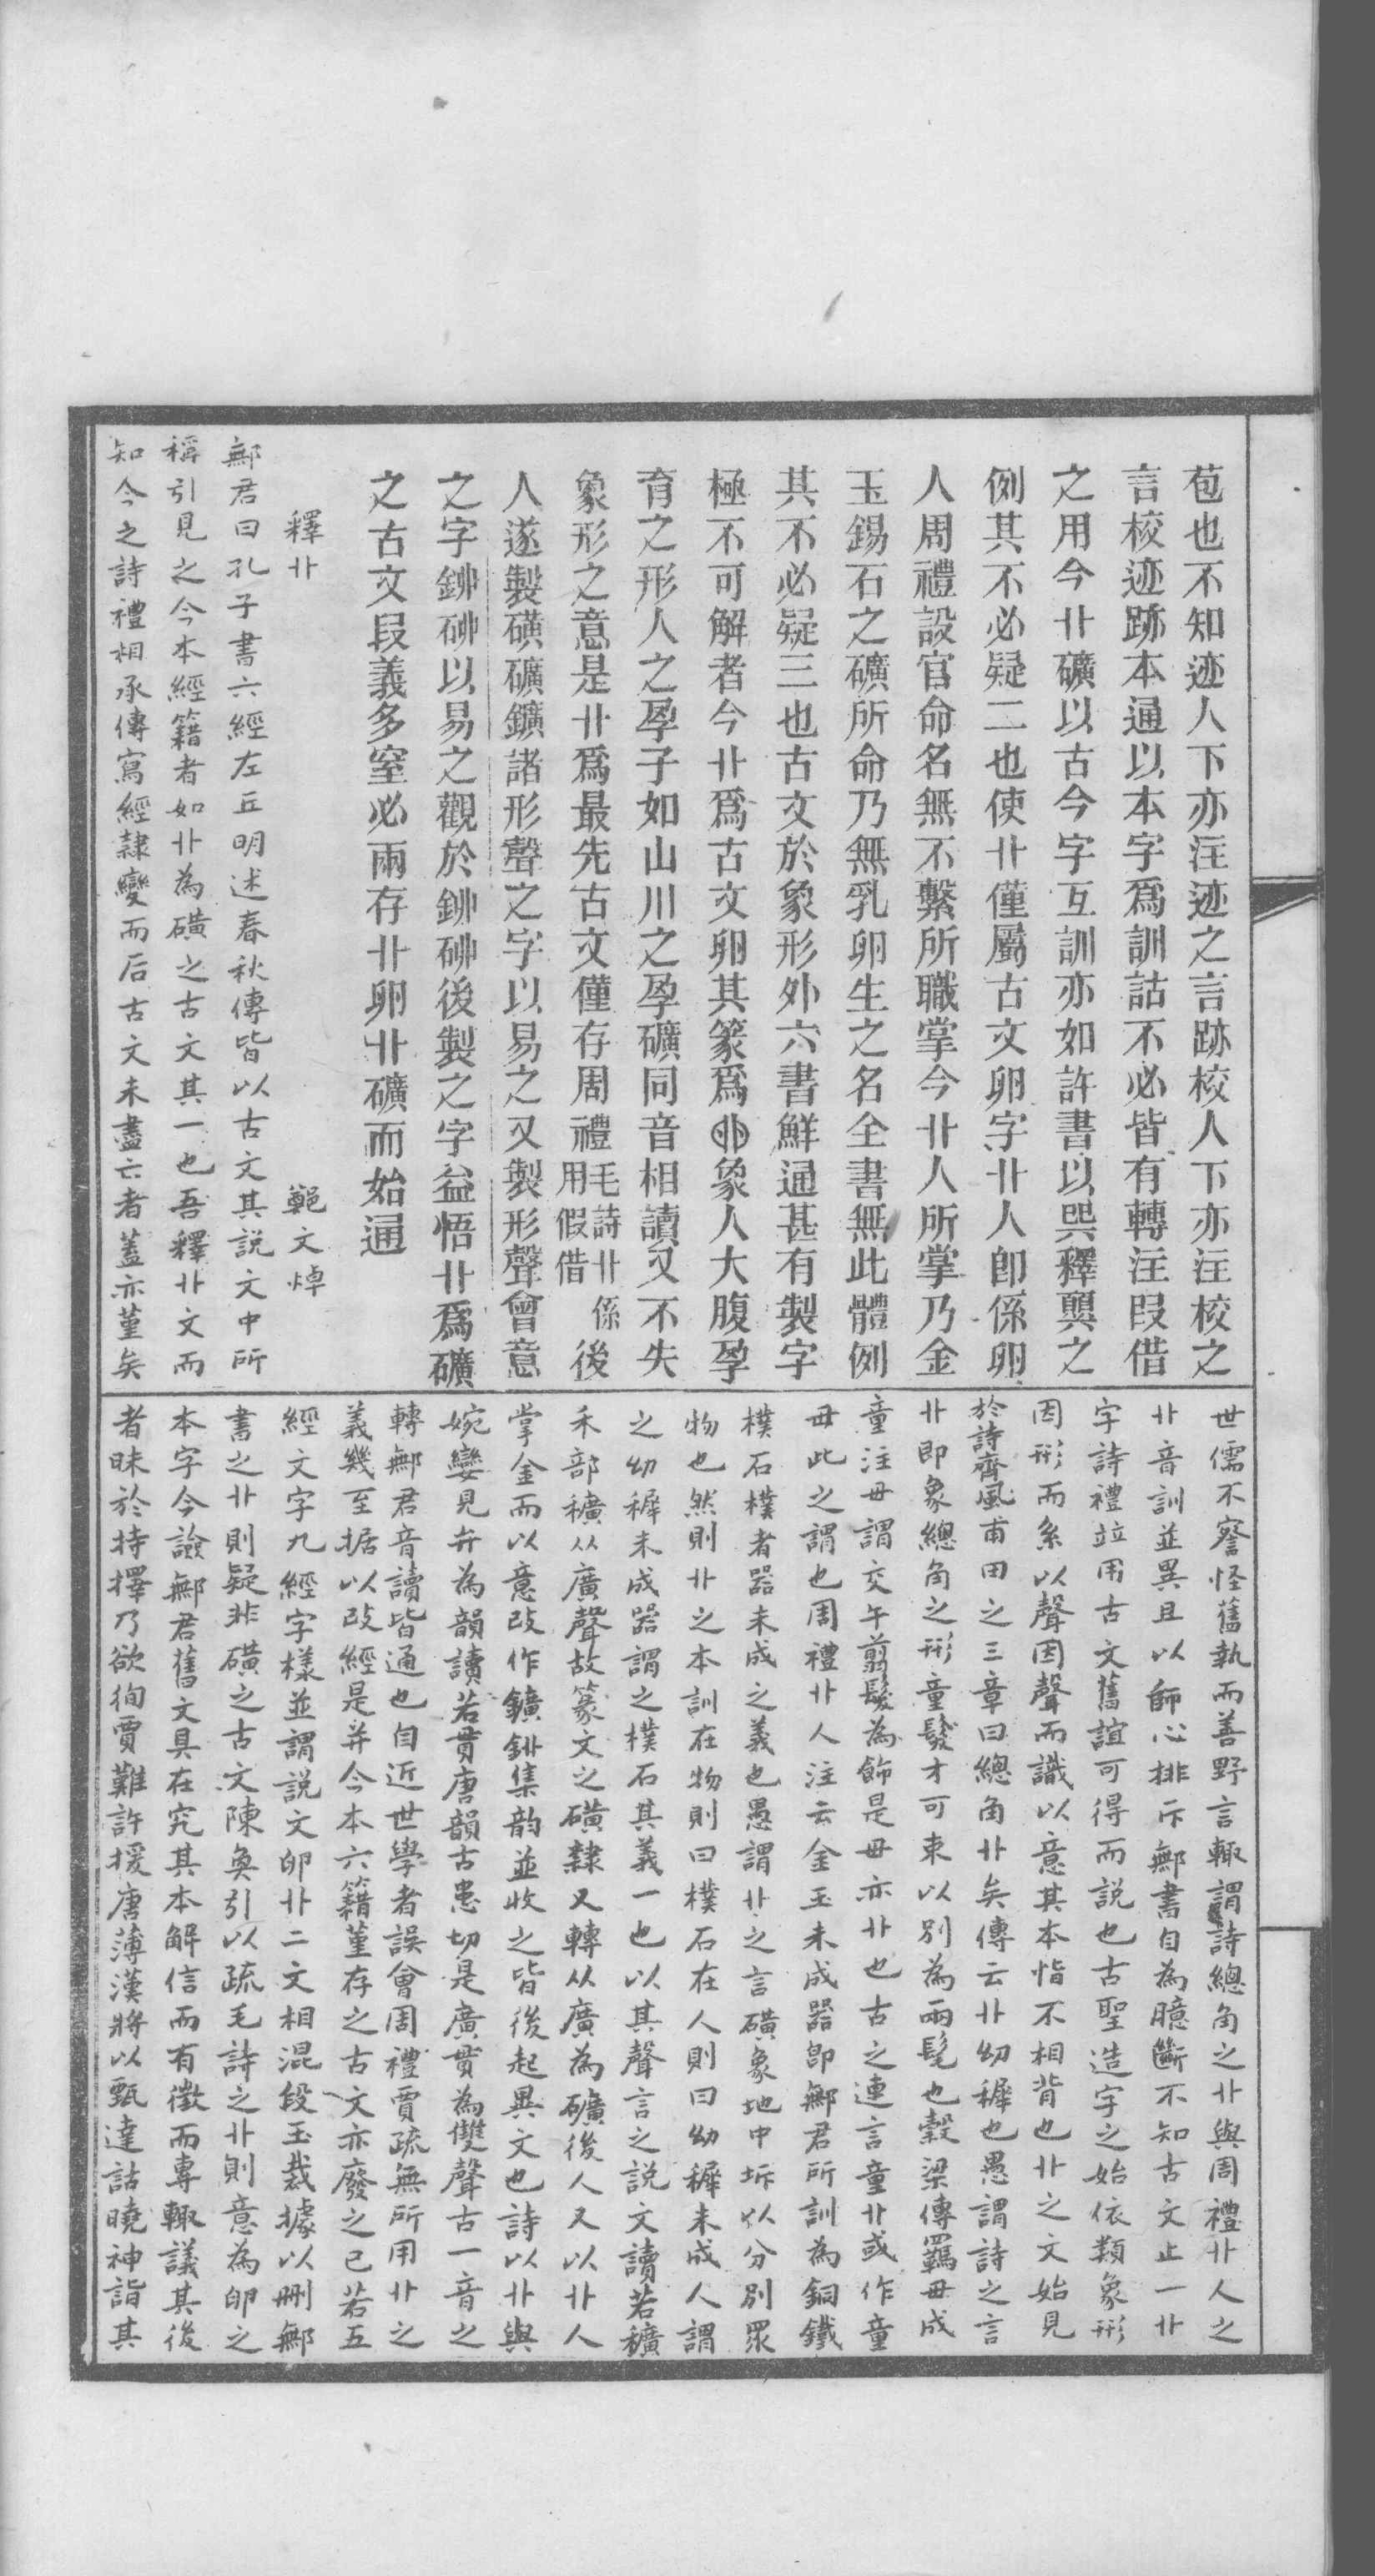 苞也不知迹人下亦注迹之言跡校人下亦注校之
言校迹跡本通以本字爲訓詁不必皆有轉注叚借
之用今卝礦以古今字互訓亦如許書以㢲釋顨之
例其不必疑二也使卝僅屬古文卵字卝人卽係卵
人周禮設官命名無不繫所職掌今卝人所掌乃金
玉錫石之礦所命乃無乳卵生之名全書無此體例
其不必疑三也古文於象形外六書鮮通甚有製字
極不可解者今卝爲古文卵其篆爲象人大腹孕
育之形人之孕子如山川之孕礦同音相讀又不失
象形之意是卝爲最先古文僅存周禮毛詩卝係用假借後
人遂製磺礦鑛諸形聲之字以易之又製形聲會意
之字鉚硇以易之觀於鉚硇後製之字益悟卝爲礦
之古文叚義多窒必兩存卝卵卝礦而始通
釋卝　鄭文焯
鄦君曰孔子書六經左丘明述春秋傳皆以古文其説文中所
稱引見之今本經籍者如卝為磺之古文其一也吾釋卝文而
知今之詩禮相承傳寫經隸變而后古文未盡亡者蓋亦堇矣
世儒不詧怪舊埶而善野言輒謂詩總角之卝與周禮卝人之
卝音訓並異且以師心排斥鄦書自為臆斷不知古文止一卝
字詩禮竝用古文舊誼可得而説也古聖造字之始依類象形
因形而系以聲因聲而識以意其本恉不相背也卝之文始見
於詩齊風甫田之三章曰總角卝矣傳云卝幼稺也愚謂詩之言
卝即象總角之形童髮才可束以別為兩髦也穀梁傳羈毌成
童注毌謂交午翦髮為飾是毌亦卝也古之連言童卝或作童
毌此之謂也周禮卝人注云金玉未成器卽鄦君所訓為銅鐵
樸石樸者器未成之義也愚謂卝之言磺象地中坼以分別眾
物也然則卝之本訓在物則曰樸石在人則曰幼稺未成人謂
之幼稺未成器謂之樸石其義一也以其聲言之説文讀若穬
禾部穬从廣聲故篆文之磺隸又轉从廣為礦後人又以卝人
掌金而以意改作鑛鉚集韵並收之皆後起異文也詩以卝與
婉孌見弁為韻讀若貫唐韻古患切是廣貫為雙聲古一音之
轉鄦君音讀皆通也自近世學者誤會周禮賈疏無所用卝之
義幾至据以改經是并今本六籍堇存之古文亦廢之已若五
經文字九經字樣並謂説文卵卝二文相混段玉裁據以刪鄦
書之卝則疑非磺之古文陳奐引以疏毛詩之卝則意為卵之
本字今譣鄦君舊文具在究其本解信而有徵而專輒議其後
者昧於持擇乃欲徇賈難許援唐薄漢將以甄達詁曉神恉其